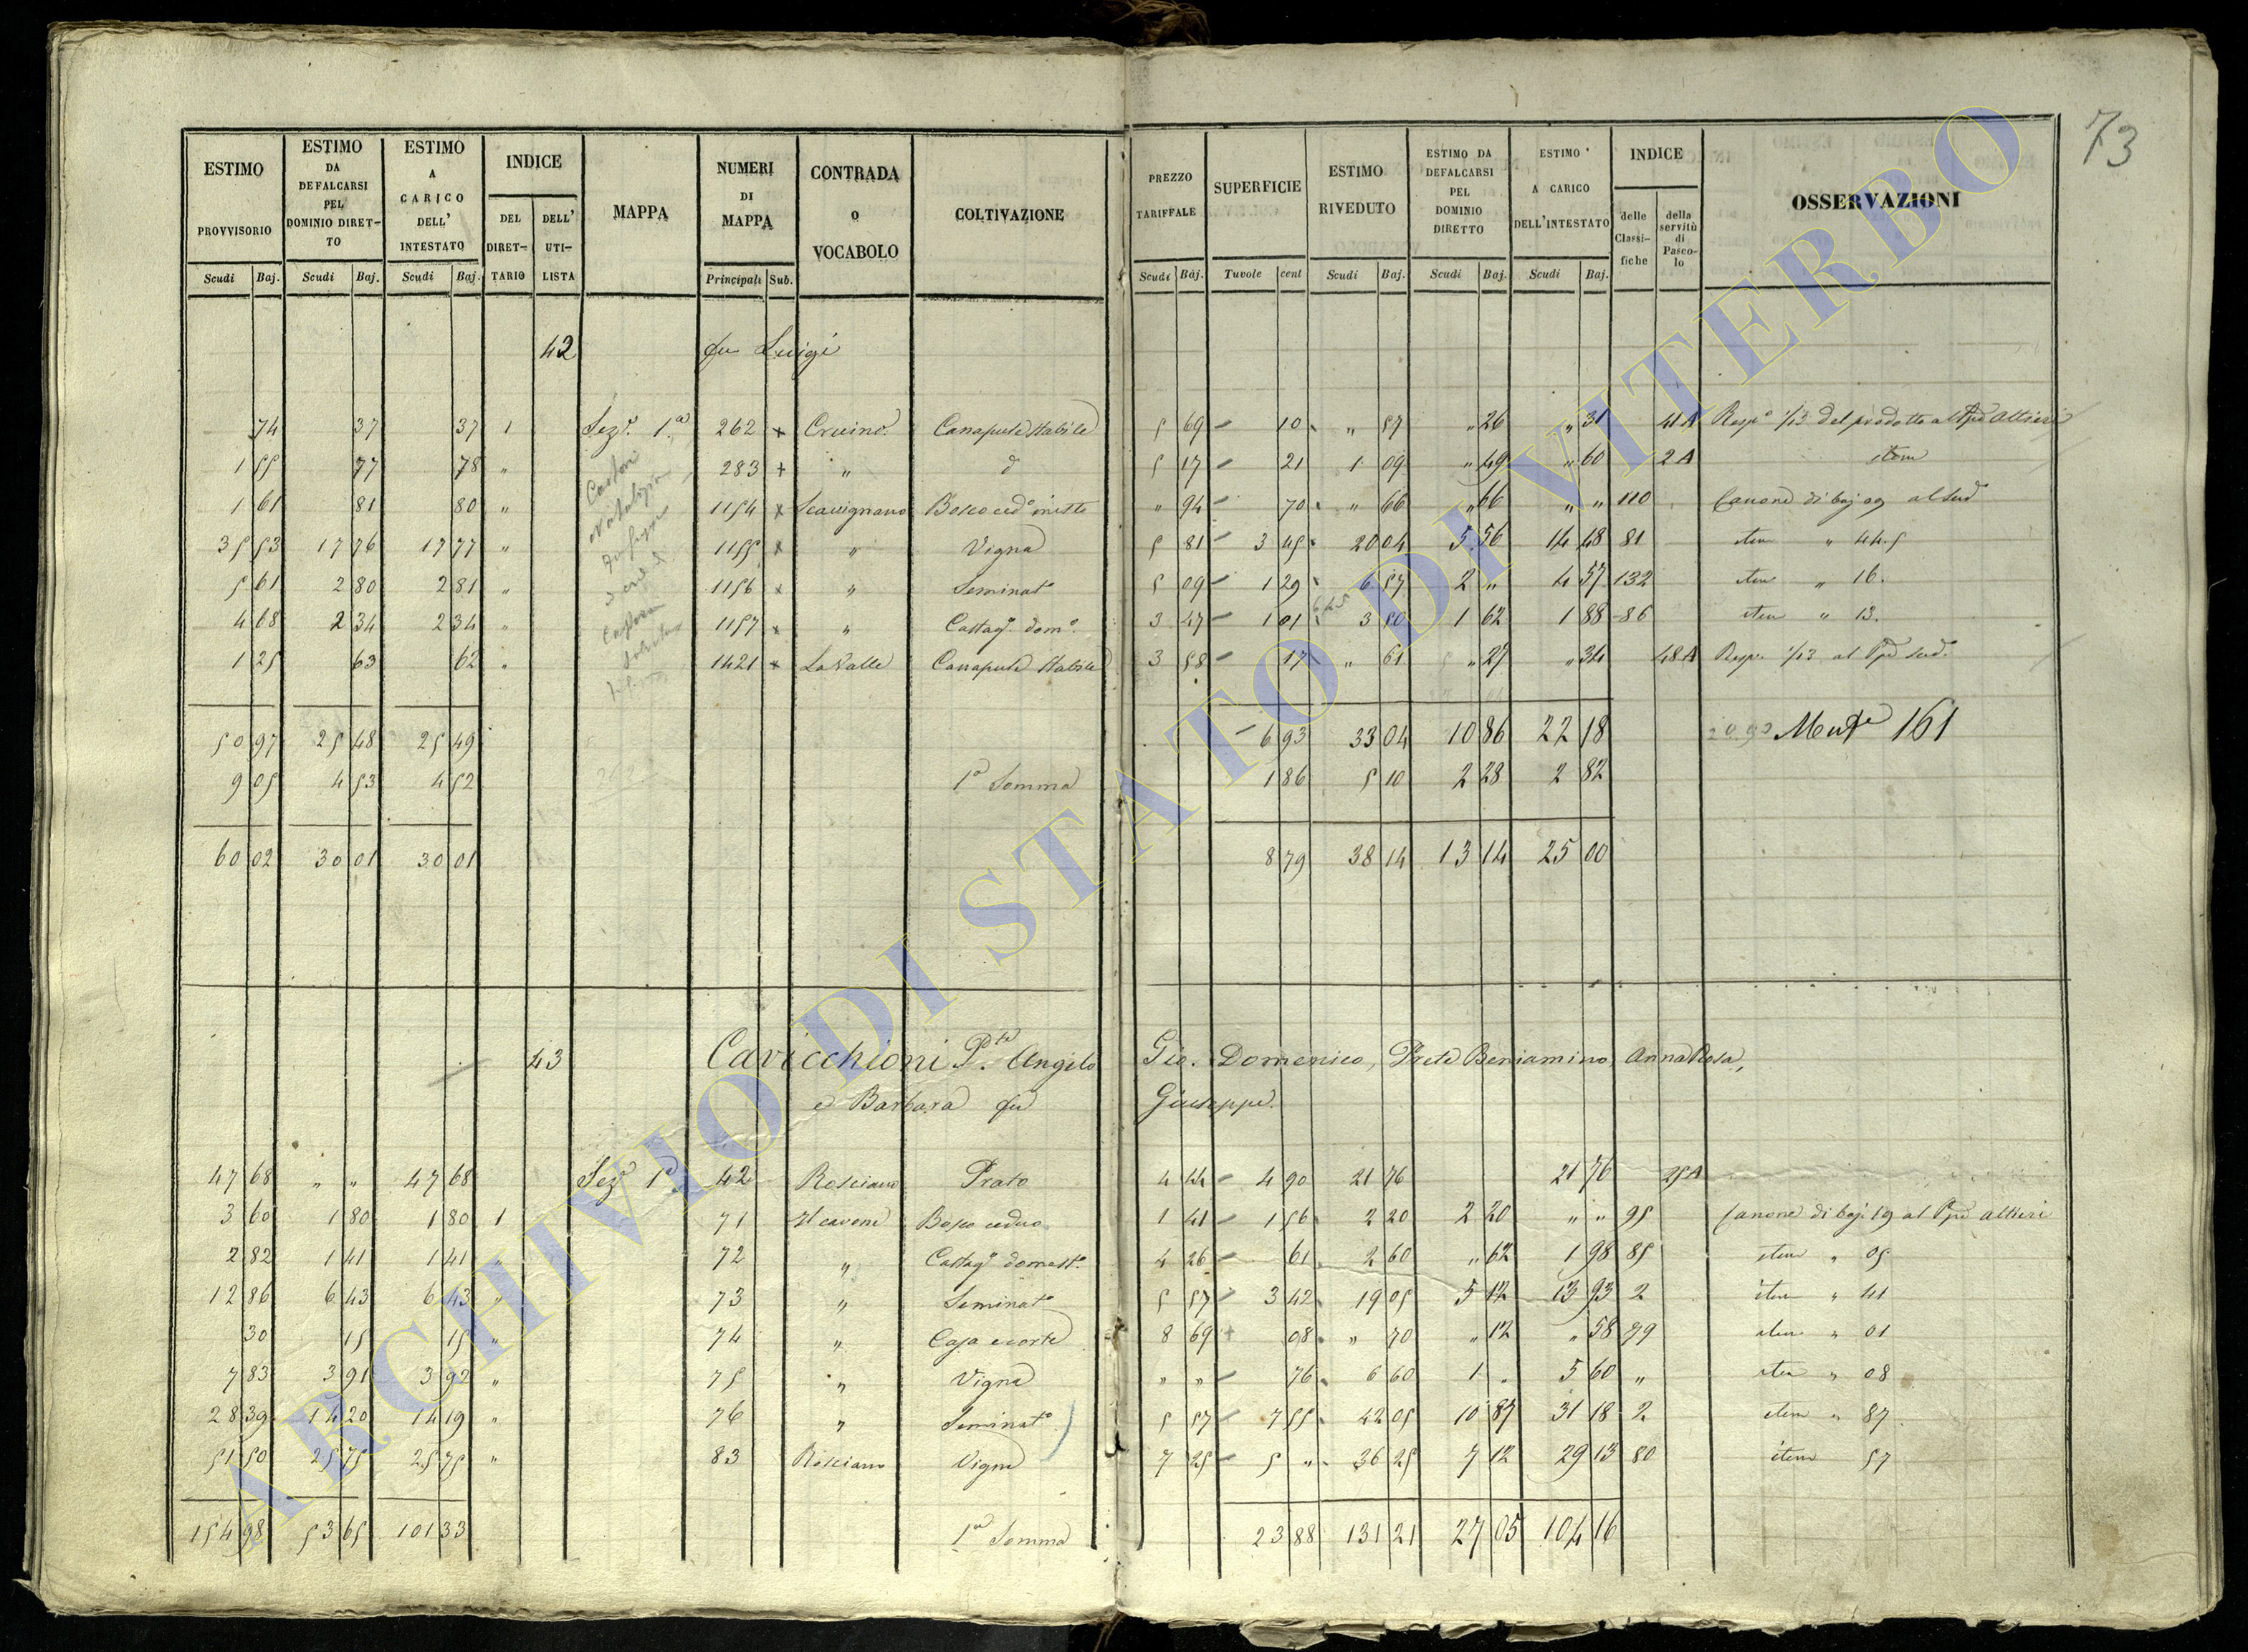 73
ESTIMO PROVVISORIO Scudi Baj. ESTIMO DA DEFALCARSI PEL DOMINIO DIRETTO Scudi Baj. ESTIMO A CARICO DELL' INTESTATO Scudi Baj. INDICE DEL DIRETTARIO DELL' UTILISTA MAPPA NUMERI DI MAPPA Principali Sub. CONTRADA O VOCABOLO COLTIVAZIONE PREZZO TARIFFALE Scudi Baj. SUPERFICIE Tavole cent ESTIMO RIVEDUTO Scudi Baj. ESTIMO DA DEFALCARSI PEL DOMINIO DIRETTO Scudi Baj. ESTIMO A CARICO DELL'INTESTATO Scudi Baj. INDICE delle Classifiche della servitù di Pascolo OSSERVAZIONI
42 fu Luigi
74 37 37 1 Sezᵉ 1ª 262 x Canapule Stabile 5 69 10 " 57 " 26 " 31 41 A 1/13 del prodotto al Altieri
1 55 77 78 " 283 + " d 5 17 21 1 09 " 49 " 60 2 A item
1 61 81 80 " 1154 x Scavignano Bosco ced° misto " 94 70 " 66 " 66 " " 110 Canone di baj 09 al Sud°
35 53 17 76 17 77 " 1155 x " Vigna 5 81 3 45 20 04 5 56 14 48 81 item " 44.5
5 61 2 80 2 81 " 1156 x " Seminat° 5 09 1 29 6 57 2 " 4 57 132 item " 16.
4 68 2 34 2 34 " 1157 x " Castag° dom° 3 47 1 01 3 50 1 62 1 88 86 item " 13.
1 25 63 62 " 1421 x La Valle Canapule Stabile 3 58 17 " 61 " 27 " 34 48 A 1/13 al Sud°
50 97 25 48 25 49 6 93 33 04 10 86 22 18 161
9 05 4 53 4 52 1ª Somma 1 86 5 10 2 28 2 82
60 02 30 01 30 01 8 79 38 14 13 14 25 00
43 Cavicchioni Angelo Gio. Domenico, Prete Beniamino, Anna Rosa,
e Barbara fu Giuseppe.
47 68 " " 47 68 Sezᵉ 1ª 42 Rosciano Prato 4 44 4 90 21 76 21 76 25 A
3 60 1 80 1 80 1 71 Bosco ceduo 1 41 1 56 2 20 2 20 " " 95 Canone di baj. 19 al Altieri
2 82 1 41 1 41 " 72 " Castag° domest° 4 26 61 2 60 " 62 1 98 85 item " 05
12 86 6 43 6 43 " 73 " Seminat° 5 57 3 42 19 05 5 12 13 93 2 item " 41
30 15 15 " 74 " Casa e corte 8 69 08 " 70 " 12 " 58 79 item " 01
7 83 3 91 3 92 " 75 " Vigna " " 76 6 60 1 " 5 60 " item " 08
28 39 14 20 14 19 " 76 " Seminat° 5 57 7 55 42 05 10 87 31 18 2 item " 87
51 50 25 75 25 75 " 83 Rosciano Vigna 7 25 5 " 36 25 7 12 29 13 80 item 57
154 98 53 65 101 33 1ª Somma 23 88 131 21 27 05 104 16
ARCHIVIO DI STATO DI VITERBO